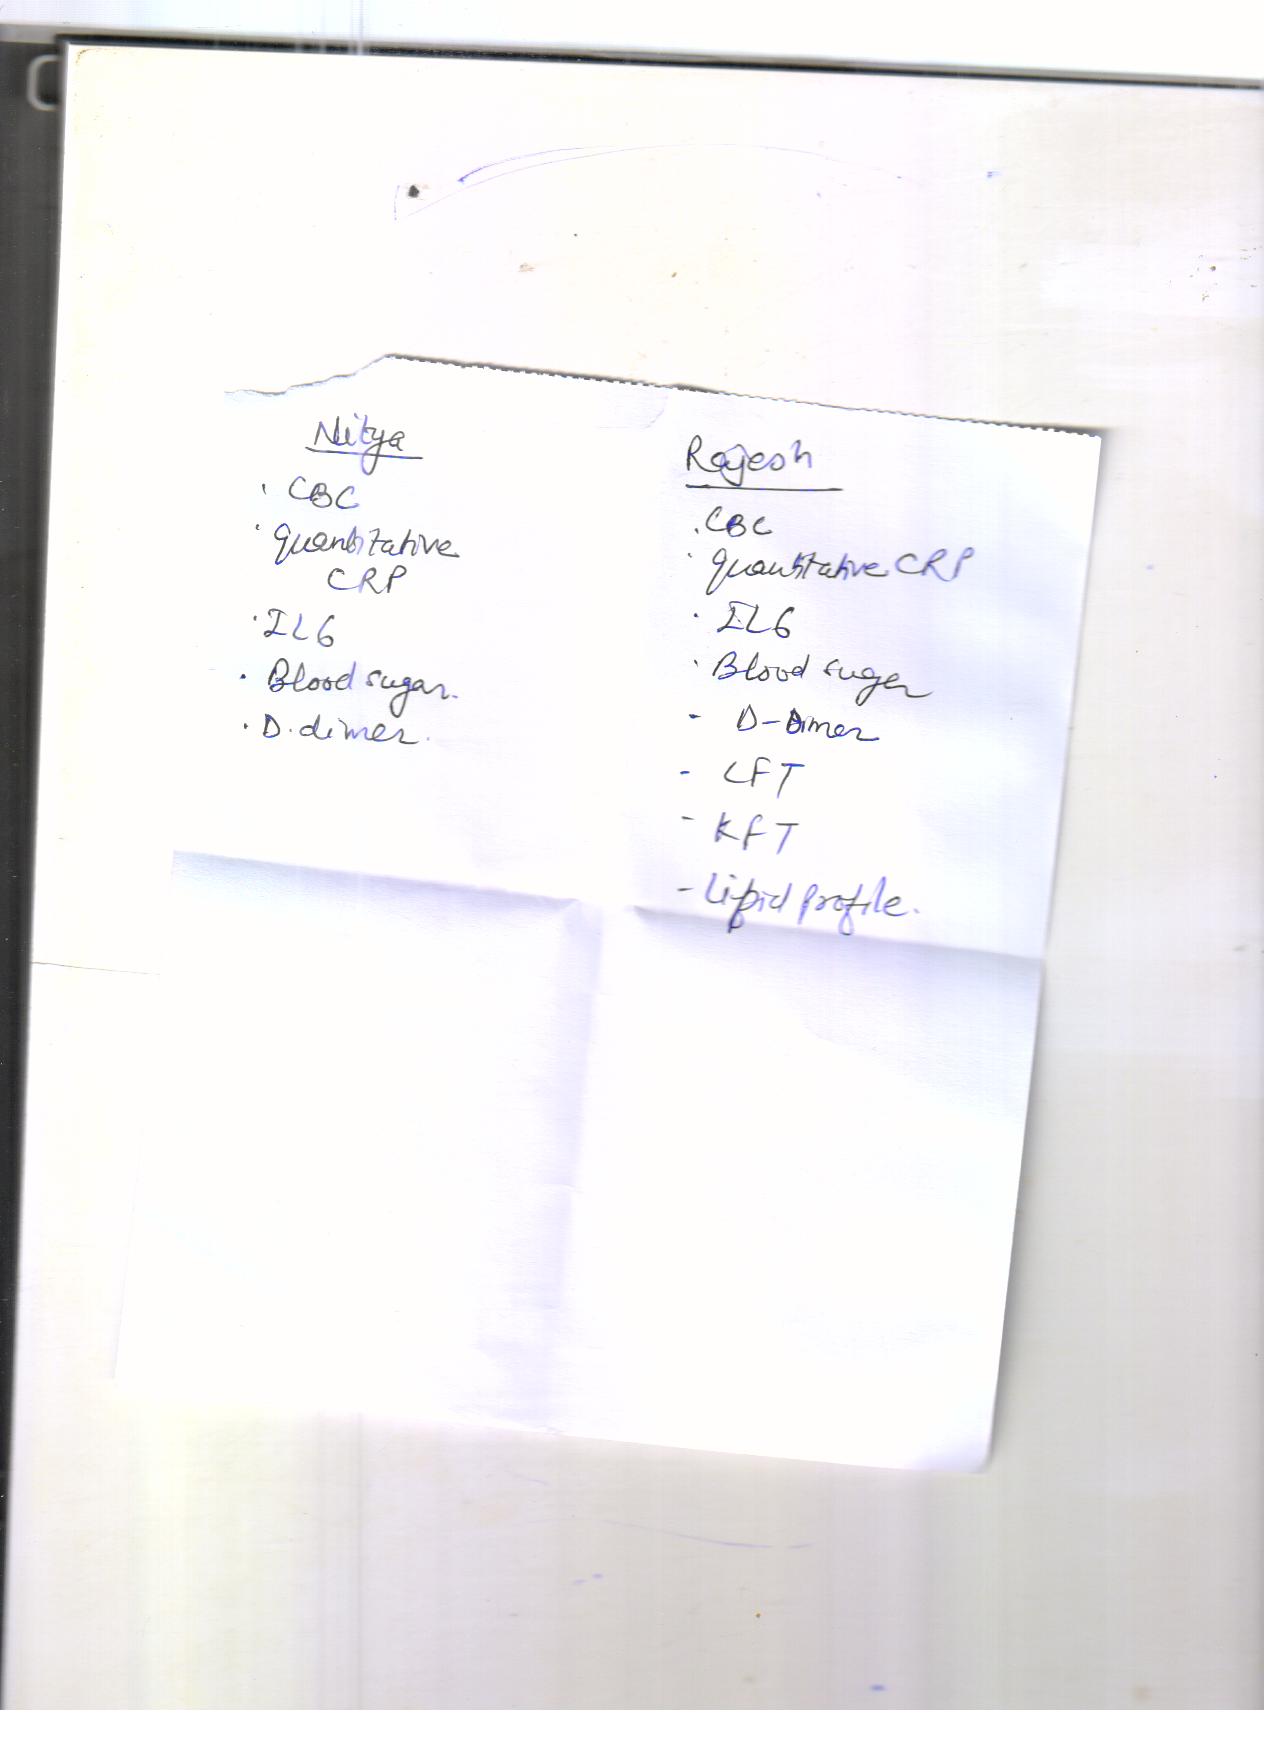 Nitya
· CBC
· Quantitative
CRP
· IL6
· Blood sugar.
· D. dimer.
Rajesh
. CBC
· Quantitative CRP
· IL6
· Blood suger
- D-Dimer
- LFT
- KFT
- Lipid profile.